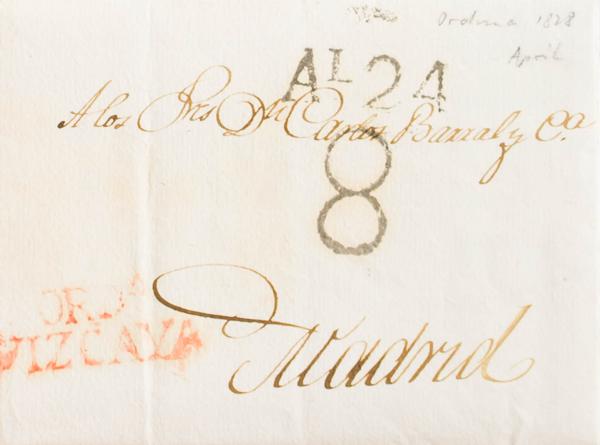 Orduna 1828
April
AL 24
A los Srs Dn Carlos Barral y Ca.
8
ORDA
VIZCAYA
Madrid